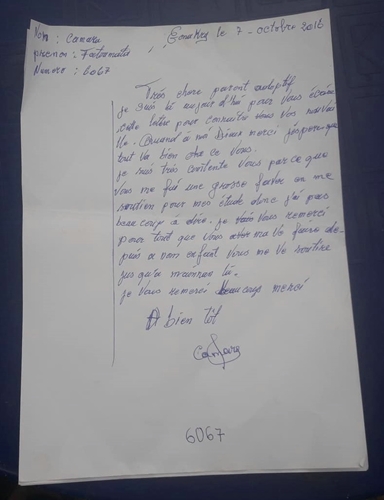 Nom : Camara
prenom : Fatoumata
Numero : 6067
Conakry le 7 - octobre 2016
Très chere parent adoptif
je suis là aujourd'hui pour vous écrire
cette lettre pour vous nouvel
le . Quand à moi Dieu merci j'espere que
tout va bien chez vous.
je suis très contente vous parce que
vous me fai une grosse faveur
soutien pour mes étude donc j'ai pas
beaucoup à dire. je vous remerci
pour tout que vous
puis vous me
jusqu'a maintenan là.
je vous remerci beaucoup merci
A bien tôt
Camara
6067